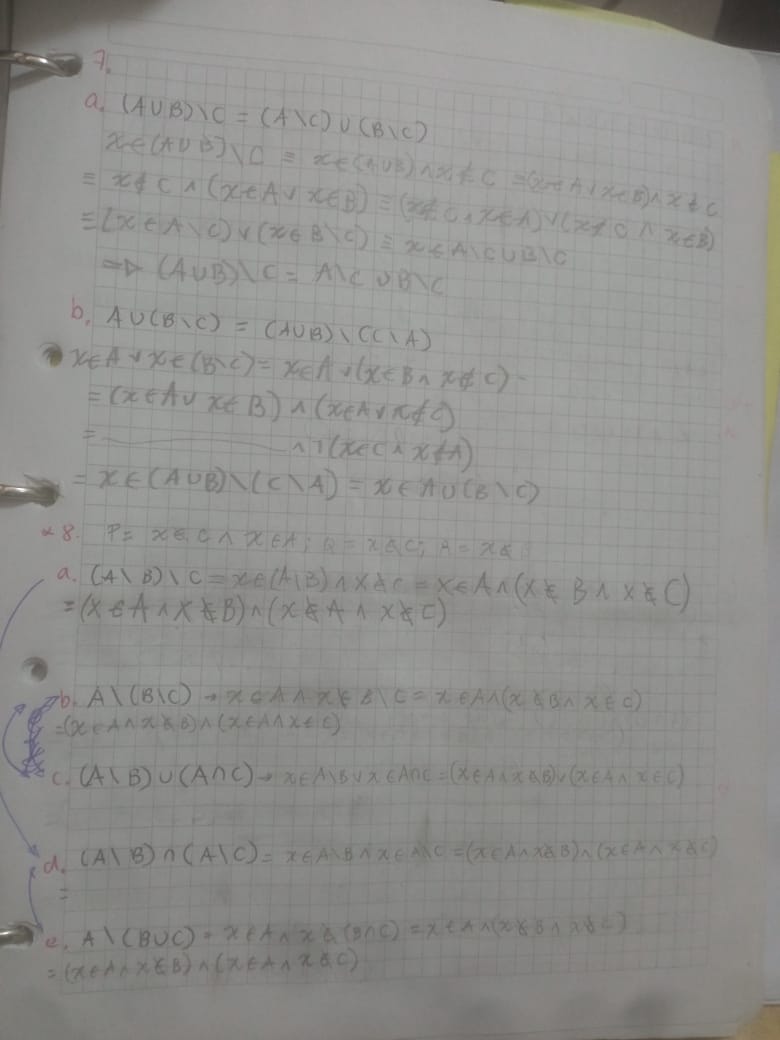 7.
a. (A∪B)\C = (A\C) ∪ (B\C)
x∈(A∪B)\C ≡ x∈(A∪B) ∧ x∉C ≡ (x∈A ∨ x∈B) ∧ x∉C
≡ x∉C ∧ (x∈A ∨ x∈B) ≡ (x∉C ∧ x∈A) ∨ (x∉C ∧ x∈B)
≡ (x∈A\C) ∨ (x∈B\C) ≡ x∈A\C∪B\C
⇒ (A∪B)\C = A\C ∪ B\C
b. A∪(B\C) = (A∪B)\(C\A)
x∈A ∨ x∈(B\C) = x∈A ∨ (x∈B ∧ x∉C)
= (x∈A ∨ x∈B) ∧ (x∈A ∨ x∉C)
= ________ ∧ ¬(x∈C ∧ x∉A)
= x∈(A∪B)\(C\A) = x∈A∪(B\C)
8. P= x∈C ∧ x∈A;
a. (A\B)\C = x∈(A\B) ∧ x∉C = x∈A ∧ (x∉B ∧ x∉C)
= (x∈A ∧ x∉B) ∧ (x∉A ∧ x∉C)
b. A\(B\C) → x∈A ∧ x∉B\C = x∈A ∧ (x∉B ∧ x∈C)
= (x∈A ∧ x∉B) ∧ (x∈A ∧ x∈C)
c. (A\B) ∪ (A∩C) → x∈A\B ∨ x∈A∩C = (x∈A ∧ x∉B) ∨ (x∈A ∧ x∈C)
d. (A\B) ∩ (A\C) = x∈A\B ∧ x∈A\C = (x∈A ∧ x∉B) ∧ (x∈A ∧ x∉C)
=
e. A\(B∪C) = x∈A ∧ x∉(B∩C) = x∈A ∧ (x∉B ∧ x∉C)
= (x∈A ∧ x∉B) ∧ (x∈A ∧ x∉C)